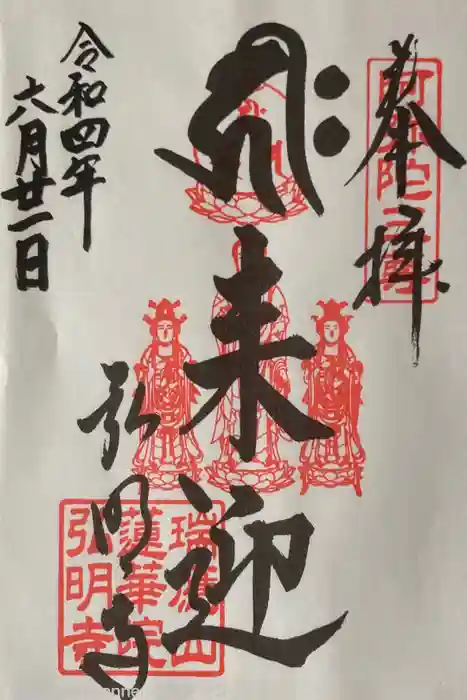 奉拝
阿弥陀三尊
来迎
令和四年
六月廿一日
弘明寺
瑞應山
蓮華院
弘明寺